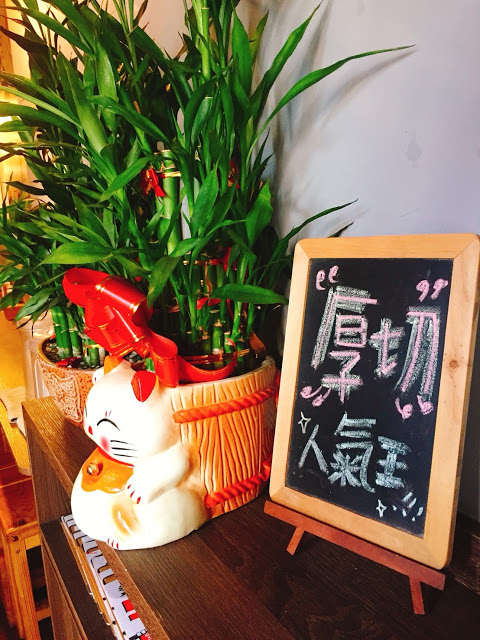 厚切
人氣王